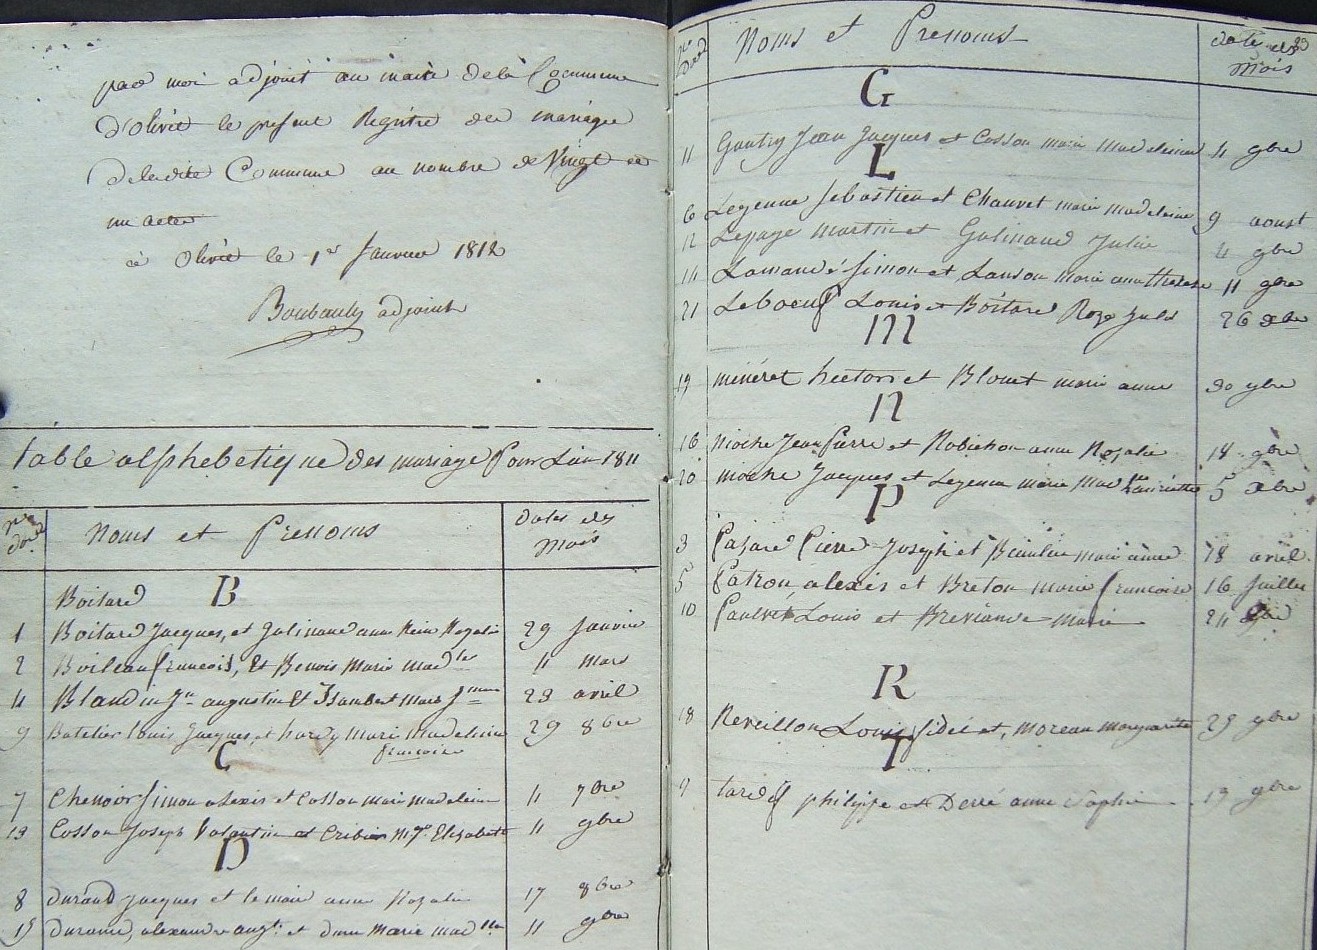 par moi adjoint au maire de la Commune
d'Olivet le present Registre des mariages
de ladite Commune au nombre de Vingt et
un actes
à Olivet le 1er Janvier 1812
adjoint
table alphebetique des mariage Pour Lan 1811
Noms et Prenoms dates des Mois
Boitard B
1 Boitard Jacques, et Galinand anne Reine Rozalie 29 Janvier
2 Boileau francois, Et Benois Marie mad 11 mars
4 Blandin Jn augustin Et Isambert Marie 23 avril
9 Batelier louis Jacques, et hardy Marie Madeleine francoise 29 8bre
C
7 Chenoir Simon alexis et Cosson marie madeleine 11 7bre
13 Cosson Joseph Valantin et Elizabeth 11 gbre
D
8 durand jacques et lemair anne Rozalie 17 8bre
15 durand, alexandre augt. et Marie mad 11 gbre
Noms et Prenoms dates des Mois
23
G
11 Gautry Jean Jacques et Cosson marie madeleine 11 gbre
L
6 Legenne Sebastien et Chauvet marie madeleine 9 aoust
12 Lepage Martin et Galinand Julie 11 gbre
14 Simon et Lanson Marie anne therese 11 gbre
21 Leboeuf Louis et Boitard Roze Jule 26 xbre
M
19 ménéret hector et Blouet marie anne 30 gbre
N
16 nioche Jean Pierre et Robichon anne Rozalie 18 gbre
20 nioche Jacques et Legenne marie Mad henriette 5 xbre
P
3 Pierre Joseph et marie anne 18 avril
5 Patron, alexis et Breton marie francoise 16 Juillet
10 Louis et Marie 21 gbre
R
18 Reveillon Louis fidéi et, moreau marguerite 25 gbre
T
tardif philippe et Derré anne Sophie 19 gbre